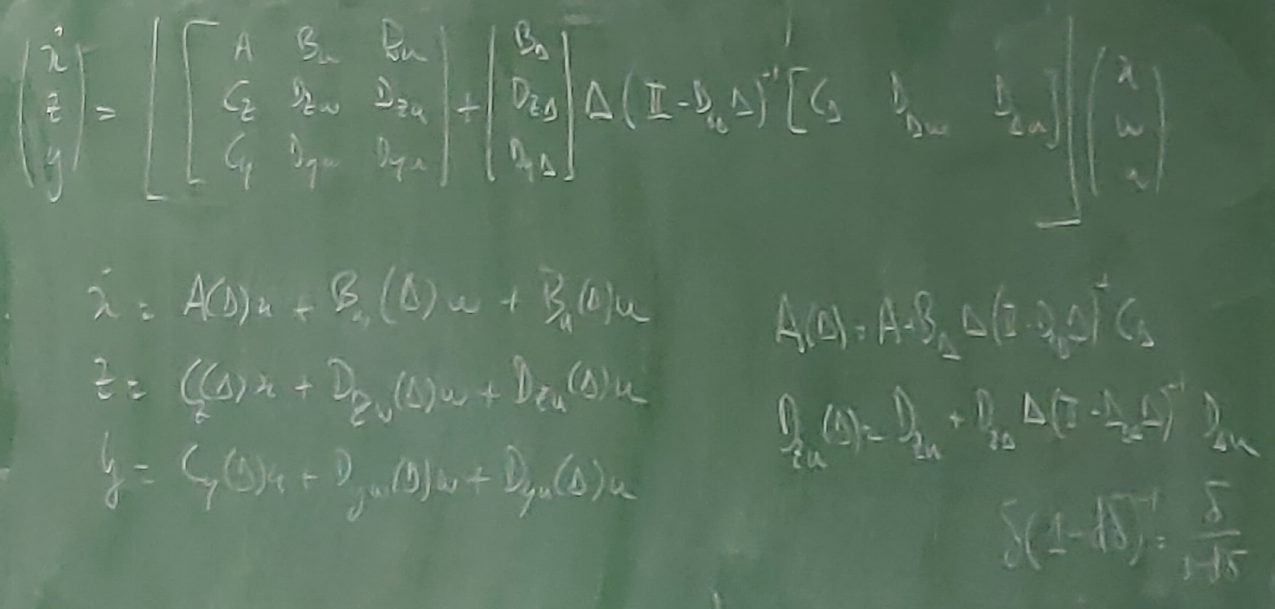 (ẋ z y) = [[A B_w B_u; C_z D_zw D_zu; C_y D_yw D_yu] + [B_Δ; D_zΔ; D_yΔ] Δ(I - D_ΔΔ Δ)⁻¹ [C_Δ D_Δw D_Δu]] (x w u)
ẋ = A(Δ)x + B_w(Δ)w + B_u(Δ)u
z = C_z(Δ)x + D_zw(Δ)w + D_zu(Δ)u
y = C_y(Δ)x + D_yw(Δ)w + D_yu(Δ)u
A(Δ) = A + B_Δ Δ(I - D_ΔΔ Δ)⁻¹ C_Δ
D_zu(Δ) = D_zu + D_zΔ Δ(I - D_ΔΔ Δ)⁻¹ D_Δu
δ(1 - dδ)⁻¹ = δ/(1 - dδ)